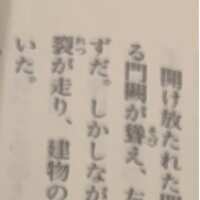 開け放たれた
る門闕が聳え、左
ずだ。しかしなが
裂が走り、建物の
いた。